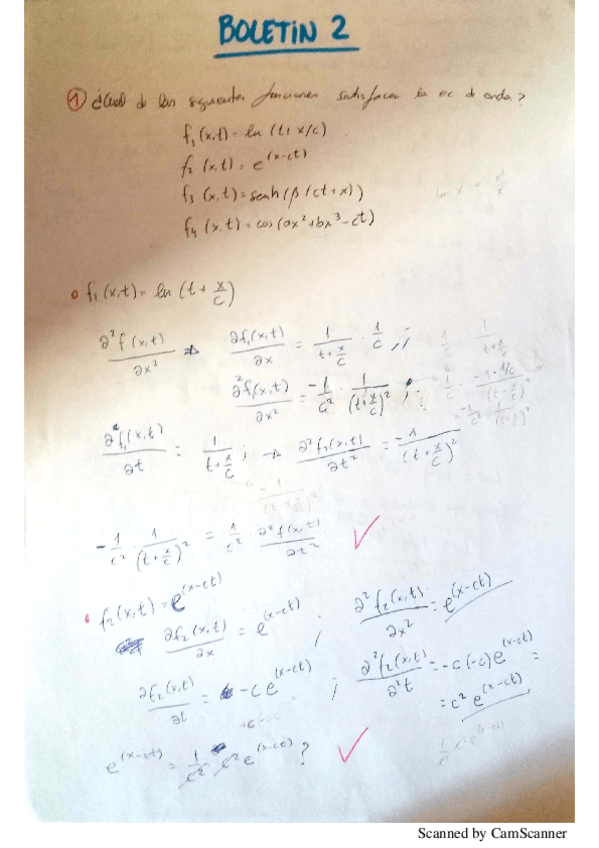 BOLETIN 2
① ¿Cual de las siguientes funciones satisfacen la ec de onda?
f₁(x,t) = ln (t + x/c)
f₂ (x,t) = e^(x-ct)
f₃ (x,t) = senh (β (ct+x))
f₄ (x,t) = cos (ax² + bx³ - ct)
f₁(x,t) = ln (t + x/c)
∂²f(x,t)/∂x² ⇒ ∂f₁(x,t)/∂x = 1/(t+x/c) · 1/c ;
∂²f₁(x,t)/∂x² = -1/c² · 1/(t+x/c)² ;
∂f₁(x,t)/∂t = 1/(t+x/c) ; → ∂²f₁(x,t)/∂t² = -1/(t+x/c)²
-1/c² 1/(t+x/c)² = 1/c² ∂²f(x,t)/∂t² ✓
f₂(x,t) = e^(x-ct)
∂f₂(x,t)/∂x = e^(x-ct) ; ∂²f₂(x,t)/∂x² = e^(x-ct)
∂f₂(x,t)/∂t = -c e^(x-ct) ; ∂²f₂(x,t)/∂²t = -c(-c) e^(x-ct) =
= c² e^(x-ct)
e^(x-ct) = 1/c² c² e^(x-ct) ? ✓
Scanned by CamScanner